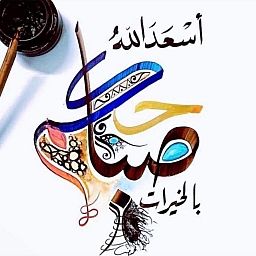 أسْعَدَ اللهُ
صباحكم
بالخيرات